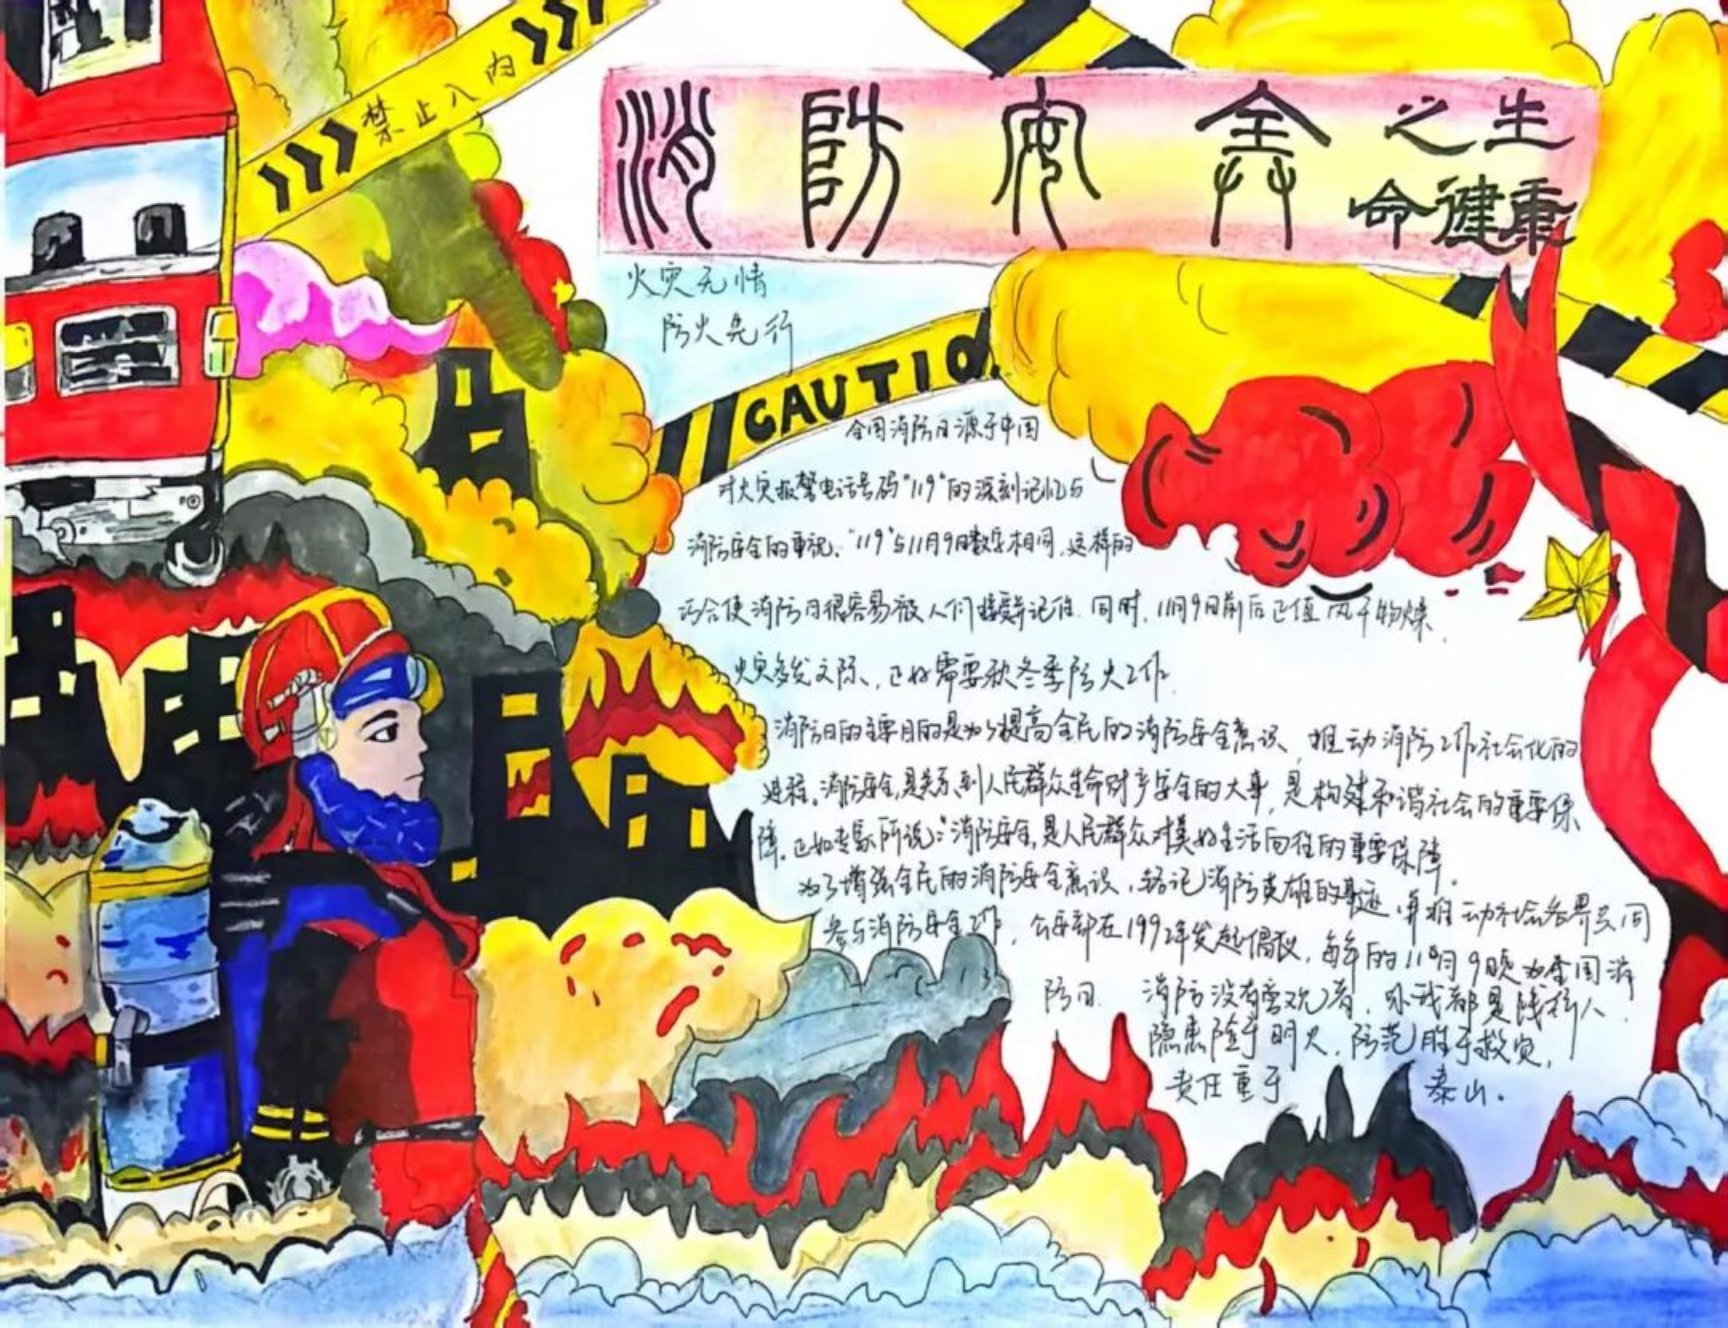 禁止入内
消防安全之生
命健康
火灾无情
防火先行
CAUTIO
全国消防日源于中国
对火灾报警电话号码"119"的深刻记忆与
消防安全的重视。"119"与11月9日数字相同,这样的
巧合使消防日很容易被人们接受并记住.同时,11月9日前后正值风干物燥,
火灾多发之际,正好需要秋冬季防火工作.
消防日的主要目的是为了提高全民的消防安全意识、推动消防工作社会化的
进程。消防安全,是关系到人民群众生命财产安全的大事,是构建和谐社会的重要保
障。正如专家所说:"消防安全,是人民群众对美好生活向往的重要保障.
为了增强全民的消防安全意识,铭记消防英雄的事迹,并推动社会各界共同
参与消防安全工作,公安部在1992年发起倡议,每年的11月9日为全国消
防日.消防没有旁观者,你我都是践行人.
隐患险于明火,防范胜于救灾,
责任重于泰山.